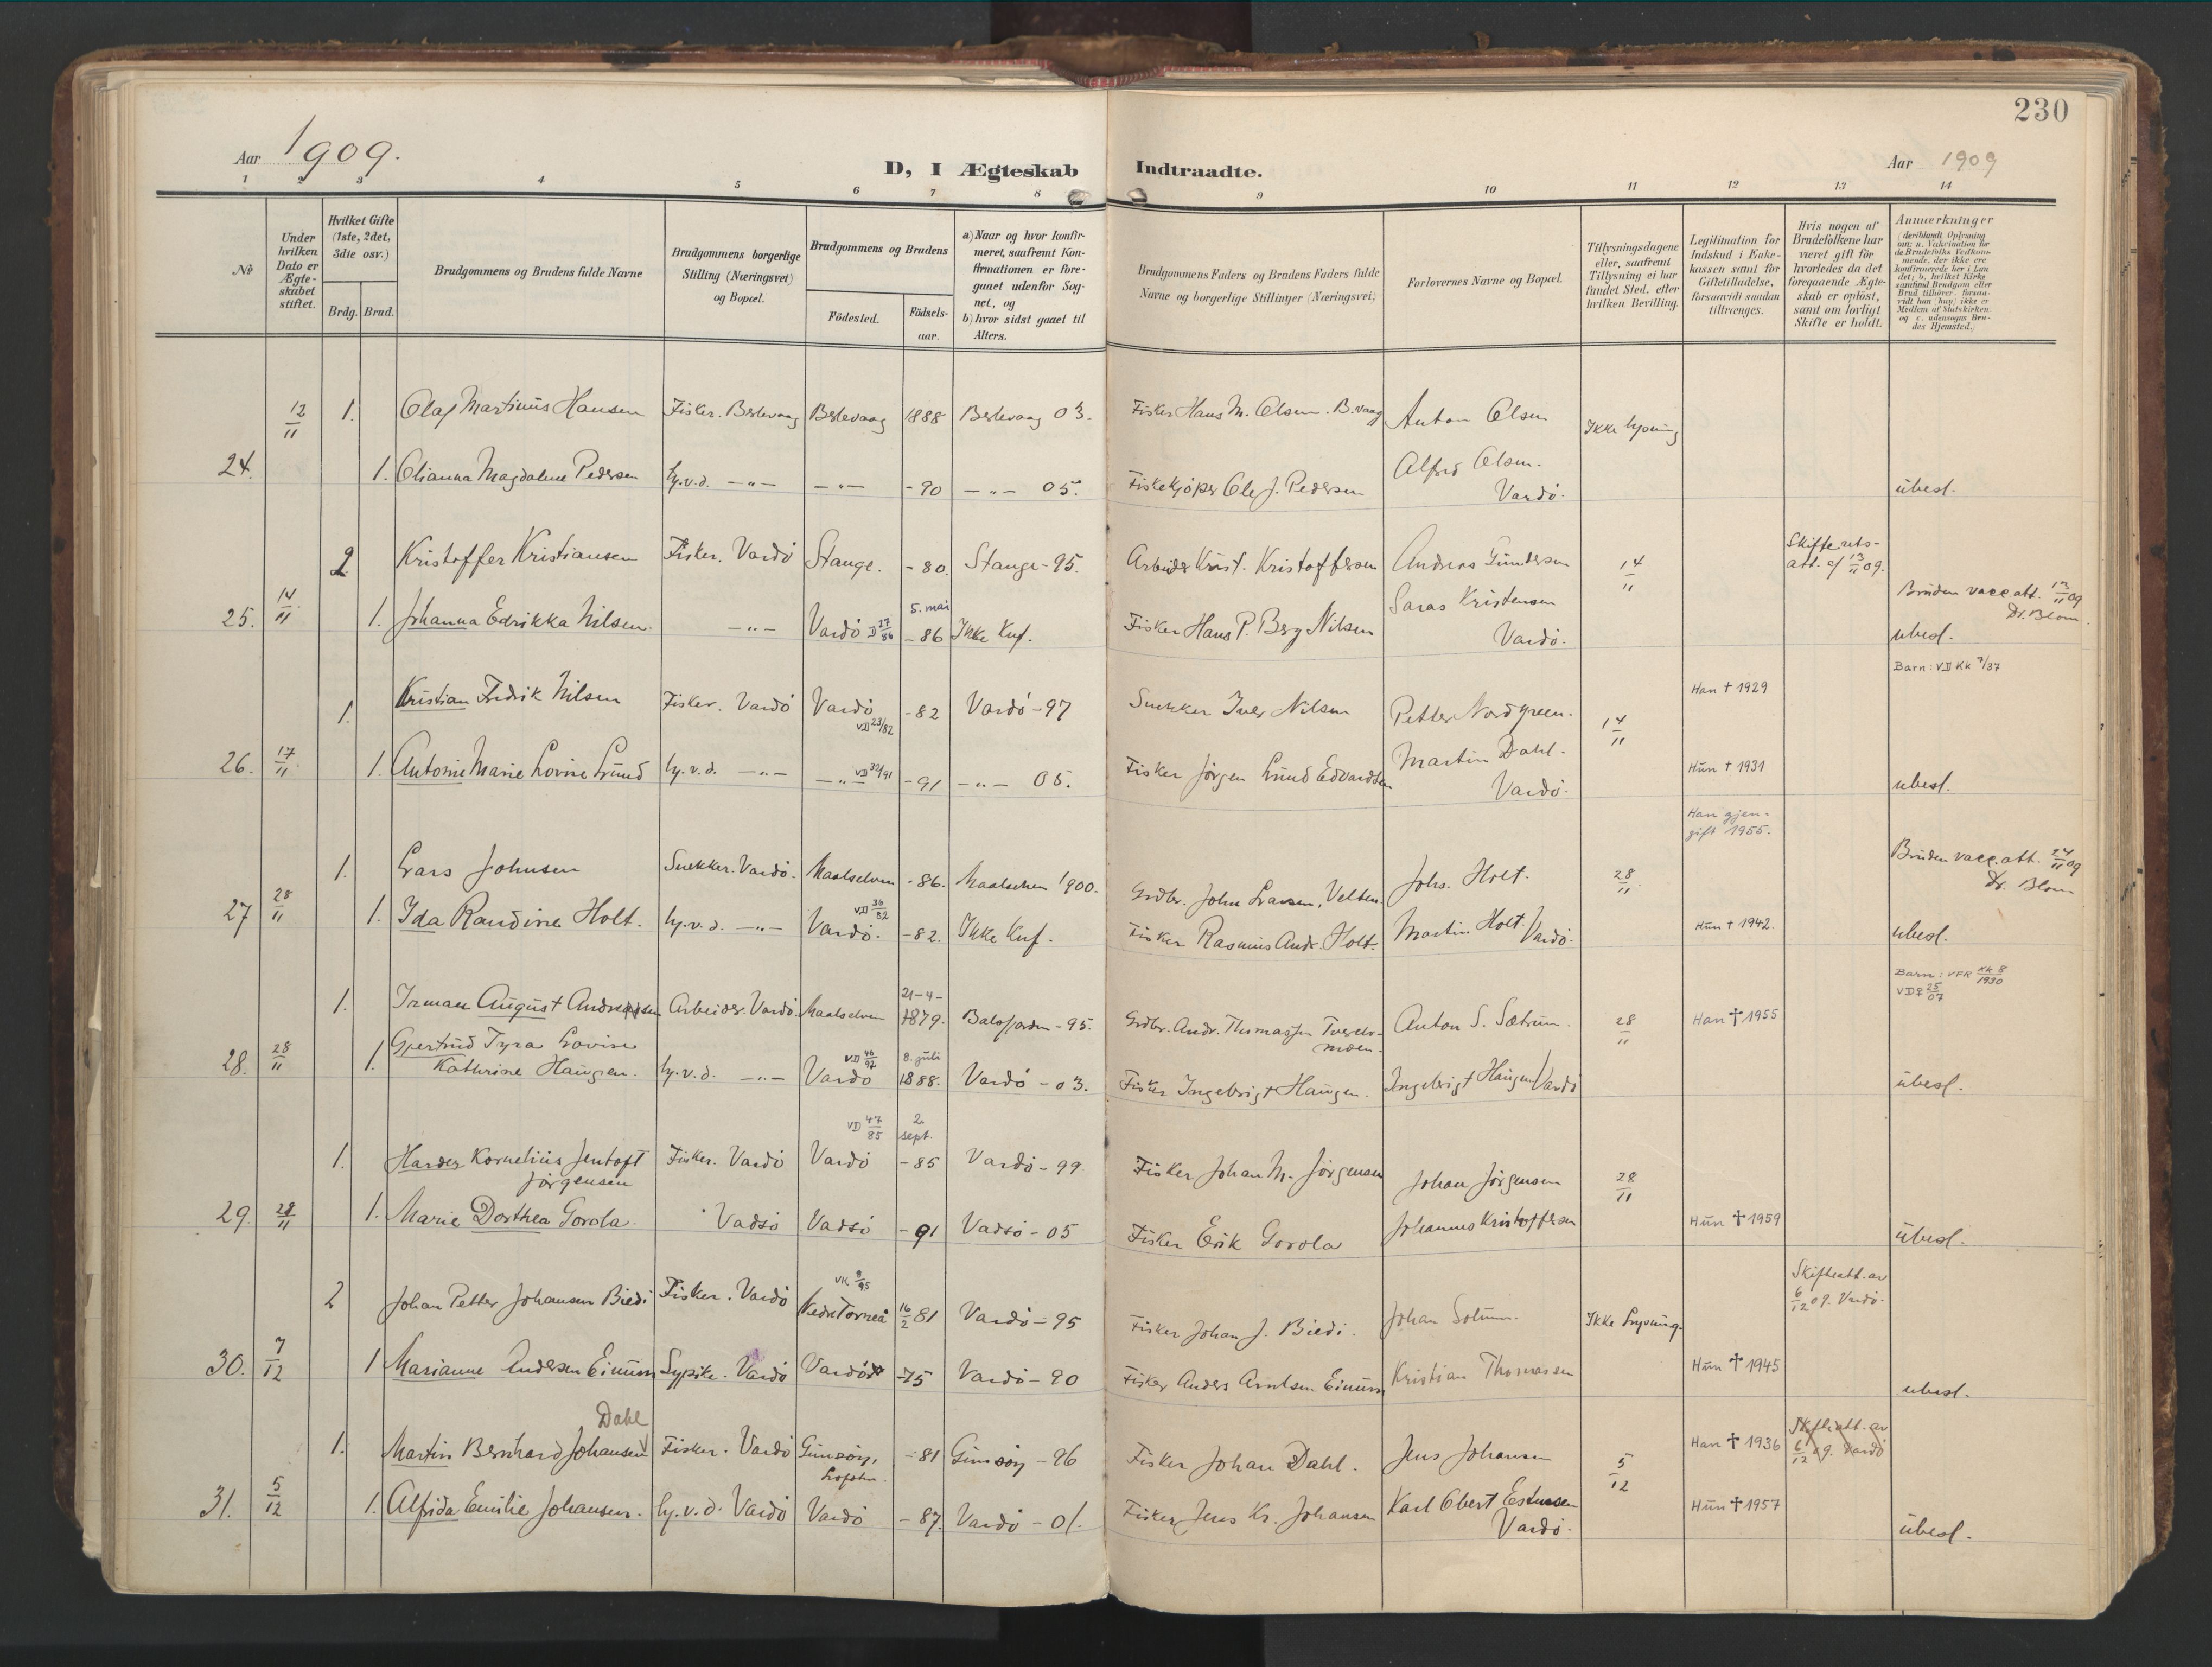 230
Aar 1909.
D, I Ægteskab Indtraadte.
Aar 1909
1 2 3 4 5 6 7 8 9 10 11 12 13 14
No
Under hvilken Dato er Ægte-skabet stiftet.
Hvilket Gifte (1ste, 2det, 3die osv.)
Brdg. Brud.
Brudgommens og Brudens fulde Navne
Brudgommens borgerlige Stilling (Næringsvei) og Bopæl.
Brudgommens og Brudens
Födested.
Födsels-aar.
a) Naar og hvor konfir-meret, saafremt Kon-firmationen er fore-gaaet udenfor Sog-net, og
b) hvor sidst gaaet til Alters.
Brudgommens Faders og Brudens Faders fulde Navne og borgerlige Stillinger (Næringsvei)
Forlovernes Navne og Bopæl.
Tillysningsdagene eller, saafremt Tillysning ei har fundet Sted, efter hvilken Bevilling.
Legitimation for Indskud i Enke-kassen samt for Giftetilladelse, forsaavidt saadan tiltrænges.
Hvis nogen af Brudefolkene har været gift før hvorledes da det foregaaende Ægte-skab er oplöst, samt om lovligt Skifte er holdt.
Anmærkninger (deriblandt Oplysning om: a. Vakcination for de Brudefolks Vedkom-mende, der ikke ere konfirmerede her i Lan det; b. hvilket Kirke samfund Brudgom eller Brud tilhörer, forsaa-vidt han (hun) ikke er Medlem af Statskirken. og c. udensogns Bru-des Hjemsted.)
12/11 1. Olaf Martinus Hansen Fisker. Berlevaag Berlevaag 1888 Berlevaag 03. Fisker Hans M. Olsen. B.vaag Anton Olsen Ikke lysning
24. 1. Olianna Magdalene Pedersen hj.v.d. —"— —"— -90 —"— 05. Fiskekjöper Ole J. Pedersen Alfred Olsen. Vardö. übesl.
2 Kristoffer Kristiansen Fisker. Vardö Stange. -80. Stange-95. Arbeider Krist. Kristoffersen Andreas Gundersen 14/11 Skifterets-att. af 13/11 09.
25. 14/11. 1. Johanna Edrikka Nilsen. —"— Vardö D 27/86 5. mai -86 Ikke Knf. Fisker Hans P. Berg Nilsen Saras Kristensen Vardö. Bruden vacc att. 13/11 09 Dr. Blom. übesl.
Barn: VD Kk 7/37
1. Kristian Fredrik Nilsen Fisker. Vardö Vardö VD 23/82 -82 Vardö-97 Snekker Iver Nilsen Petter Nordgreen. 14/11 Han † 1929
26. 17/11. 1. Antonie Marie Lovise Lund hj.v.d. —"— —"— VD 32/91 -91 —"— 05. Fisker Jörgen Lund Edvardsen Martin Dahl. Vardö. Hun † 1931 übesl.
Han gjen-gift 1955.
1. Lars Johnsen Snekker. Vardö. Maalselven -86. Maalselven 1900. Grdbr. John Larsen, Velten. Johs. Holt. 28/11. Bruden vacc. att. 24/11 09 Dr. Blom
27 28/11 1. Ida Randine Holt. hj.v.d. —"— VD 36/82 Vardö. -82. Ikke Knf. Fisker Rasmus Andr. Holt. Martin Holt. Vardö. Hun † 1942. übesl.
Barn: VFK KK 8/1930
VDF 25/07
1. Irman August Andreassen Arbeider. Vardö. Maalselven 21-4-1879. Balsfjorden-95. Grdbr. Andr. Thomassen Tverelv-moen. Anton S. Sætrum. 28/11 Han † 1955
28. 28/11 1. Gjertrud Tyra Lovise Kathrine Haugen. hj.v.d. —"— VD 46/97 Vardö 8. juli 1888. Vardö-03. Fisker Ingebrigt Haugen. Ingebrigt Haugen Vardö übesl.
1. Harder Kornelius Jentoft Jörgensen Fisker. Vardö VD 47/85 Vardö 2. sept. -85 Vardö-99. Fisker Johan M. Jörgensen Johan Jörgensen 28/11
29. 28/11 1. Marie Dorthea Gorola. Vadsö Vadsö -91 Vadsö-05 Fisker Erik Gorola Johannes Kristoffersen Hun † 1959 übesl.
2 Johan Petter Johansen Biedi Fisker. Vardö VK 9/95 Nedre Torneå 16/2 81 Vardö-95 Fisker Johan J. Biedi. Johan Solum. Ikke Lysning. Skifteatt. av 6/12 09. Vardö.
30. 7/12 1 Marianne Andersen Einum Sypike. Vardö Vardö -75 Vardö-90 Fisker Anders Arntsen Einum Kristian Thomassen Hun † 1945 übesl.
1. Martin Bernhard Johansen Dahl Fisker. Vardö Gimsöy, Lofoten. -81 Gimsöy-96 Fisker Johan Dahl. Jens Johansen 5/12 Han † 1936 Skifteatt. av 6/12 09. Vardö
31. 5/12 1. Alfrida Emilie Johansen. hj.v.d. Vardö Vardö -87. Vardö-01. Fisker Jens Kr. Johansen Karl Obert Estensen Vardö. Hun † 1957 übesl.